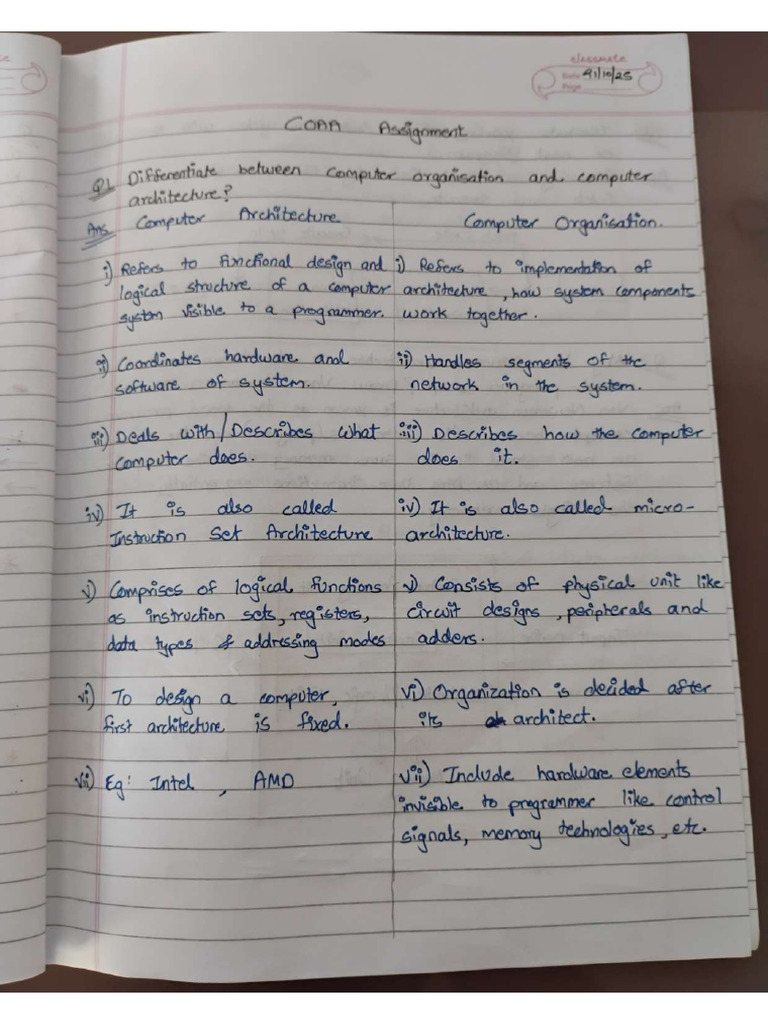 classmate
Date
Page
COAA Assignment
Q1. Differentiate between computer organisation and computer
architecture?
Ans. Computer Architecture
i) Refers to functional design and
logical structure of a computer
system visible to a programmer.
ii) Coordinates hardware and
software of system.
iii) Deals with/Describes what
computer does.
iv) It is also called
Instruction Set Architecture
v) Comprises of logical functions
as instruction sets, registers,
data types & addressing modes
vi) To design a computer,
first architecture is fixed.
vii) Eg: Intel, AMD
Computer Organisation.
i) Refers to implementation of
architecture, how system components
work together.
ii) Handles segments of the
network in the system.
iii) Describes how the computer
does it.
iv) It is also called micro-
architecture.
v) Consists of physical unit like
circuit designs, peripherals and
adders.
vi) Organization is decided after
its architect.
vii) Include hardware elements
invisible to programmer like control
signals, memory technologies, etc.